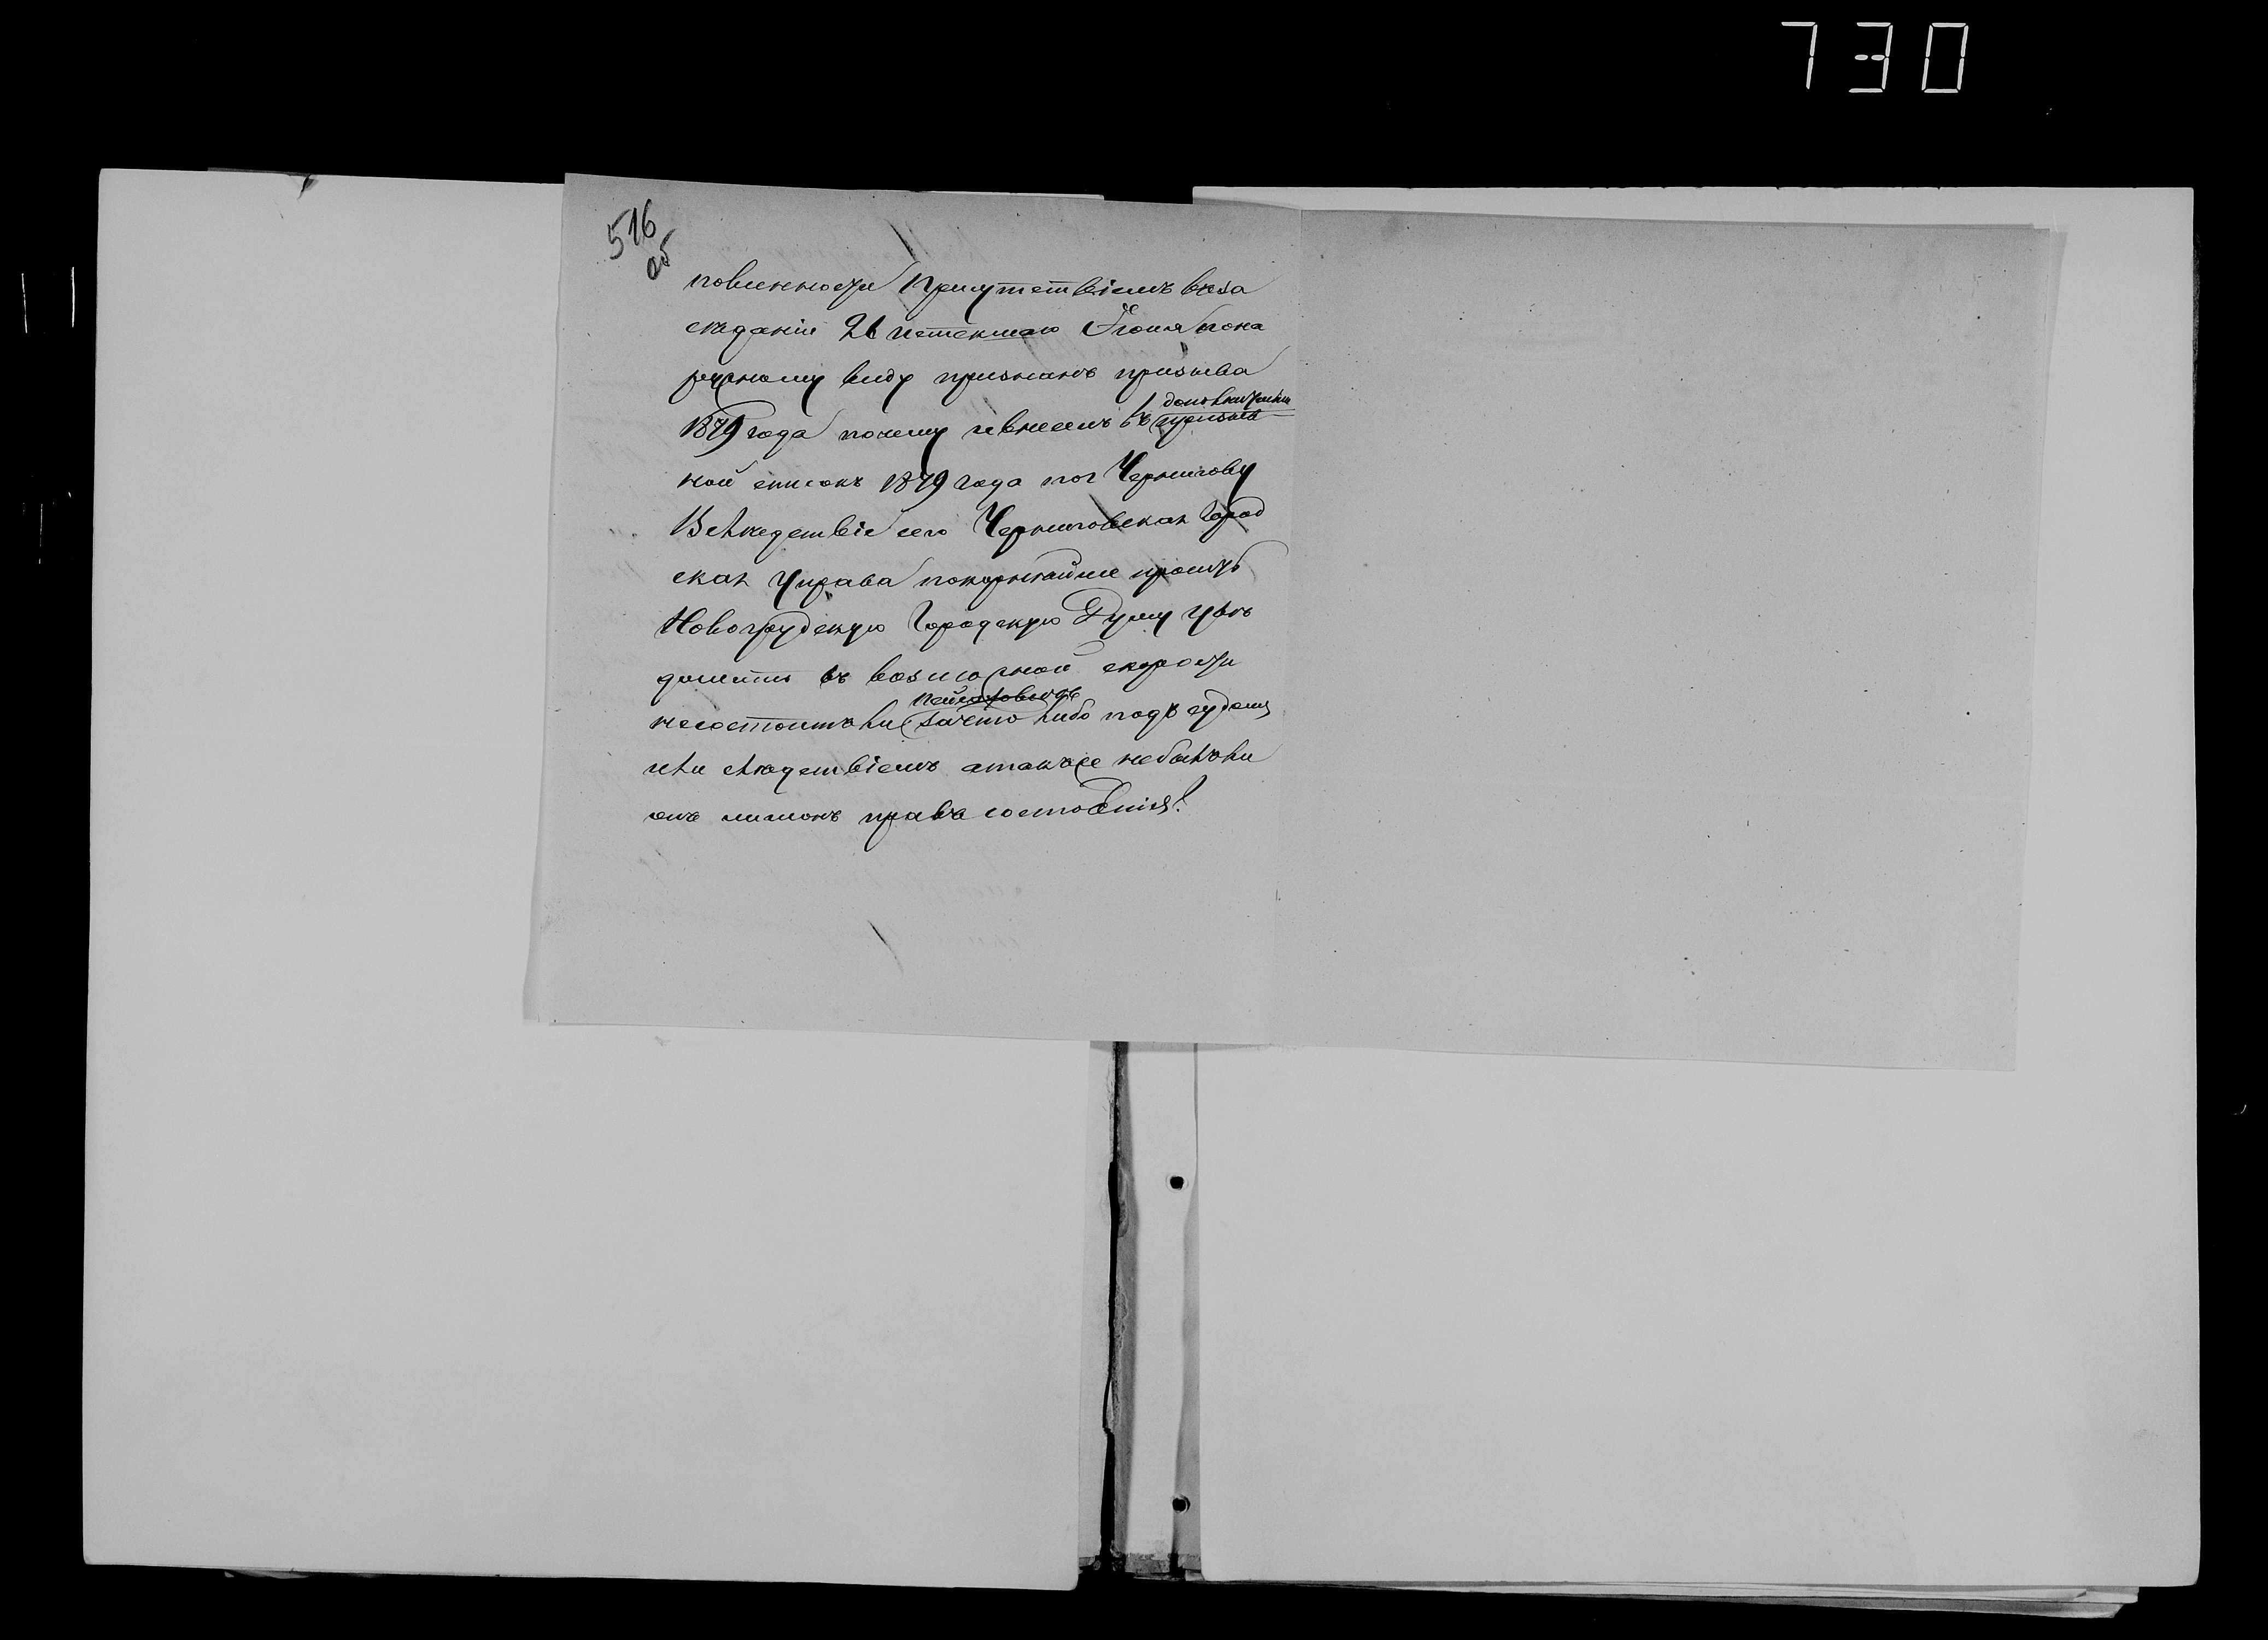 730
516
об
повинности Присутствіемъ вза
сѣданіи 26 истекшаго Іюня пона
ружному виду признанъ призыва
1879 года почему и внесенъ въ
дополнительн
призыв
ной списокъ 1879 года по г Чернигову
Вслѣдствіе сего Черниговская Город
ская Управа покорнѣйше проситъ
Новогрудскую Городскую Думу увѣ
домить въ возможной скорости
несостоитъ ли зачто либо подъ судомъ
или слѣдствіемъ атакже небылъ ли
онъ лишонъ правъ состоянія.